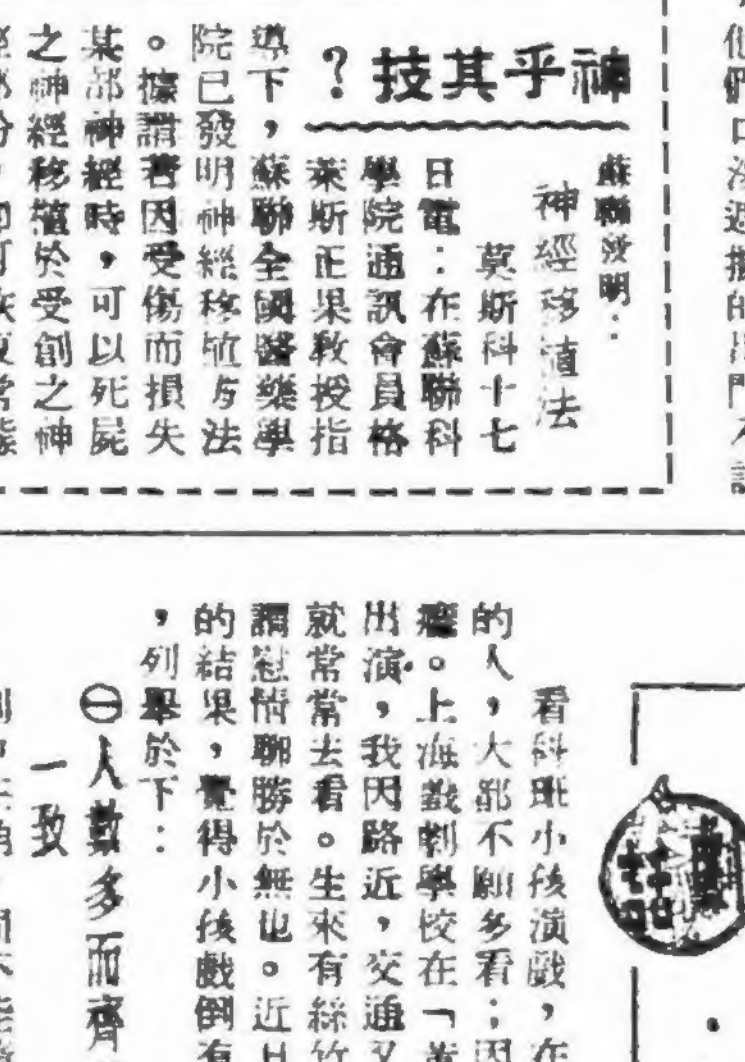 神乎其技？
蘇聯發明：
神經移植法
莫斯科十七
日電：在蘇聯科
學院通訊會員格
萊斯正果教授指
導下，蘇聯全國醫藥學
院已發明神經移植方法
。據謂若因受傷而損失
某部神經時，可以死屍
之神經移植於受創之神
看科班小孩演戲，在
的人，大都不願多看；因
癮。上海戲劇學校在「黃
出演，我因路近，交通又
就常常去看。生來有絲竹
謂慰情聊勝於無也。近日
的結果，覺得小孩戲倒有
，列舉於下：
㊀人數多而齊
一致